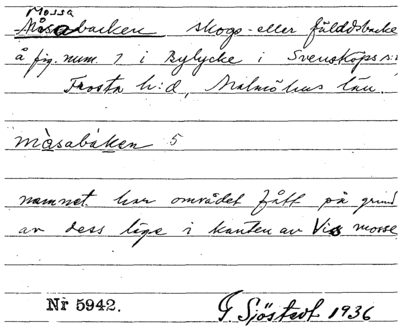 Mossa
Måsabacken skogs- eller fäladsbacke
å fig. num. 7 i Bylycke i Svensköps s:n
Frosta h:d, Malmöhus län.
måsabaken 5
namnet har området fått på grund
av dess läge i kanten av Vis mosse
Nr 5942.
G Sjöstedt 1936